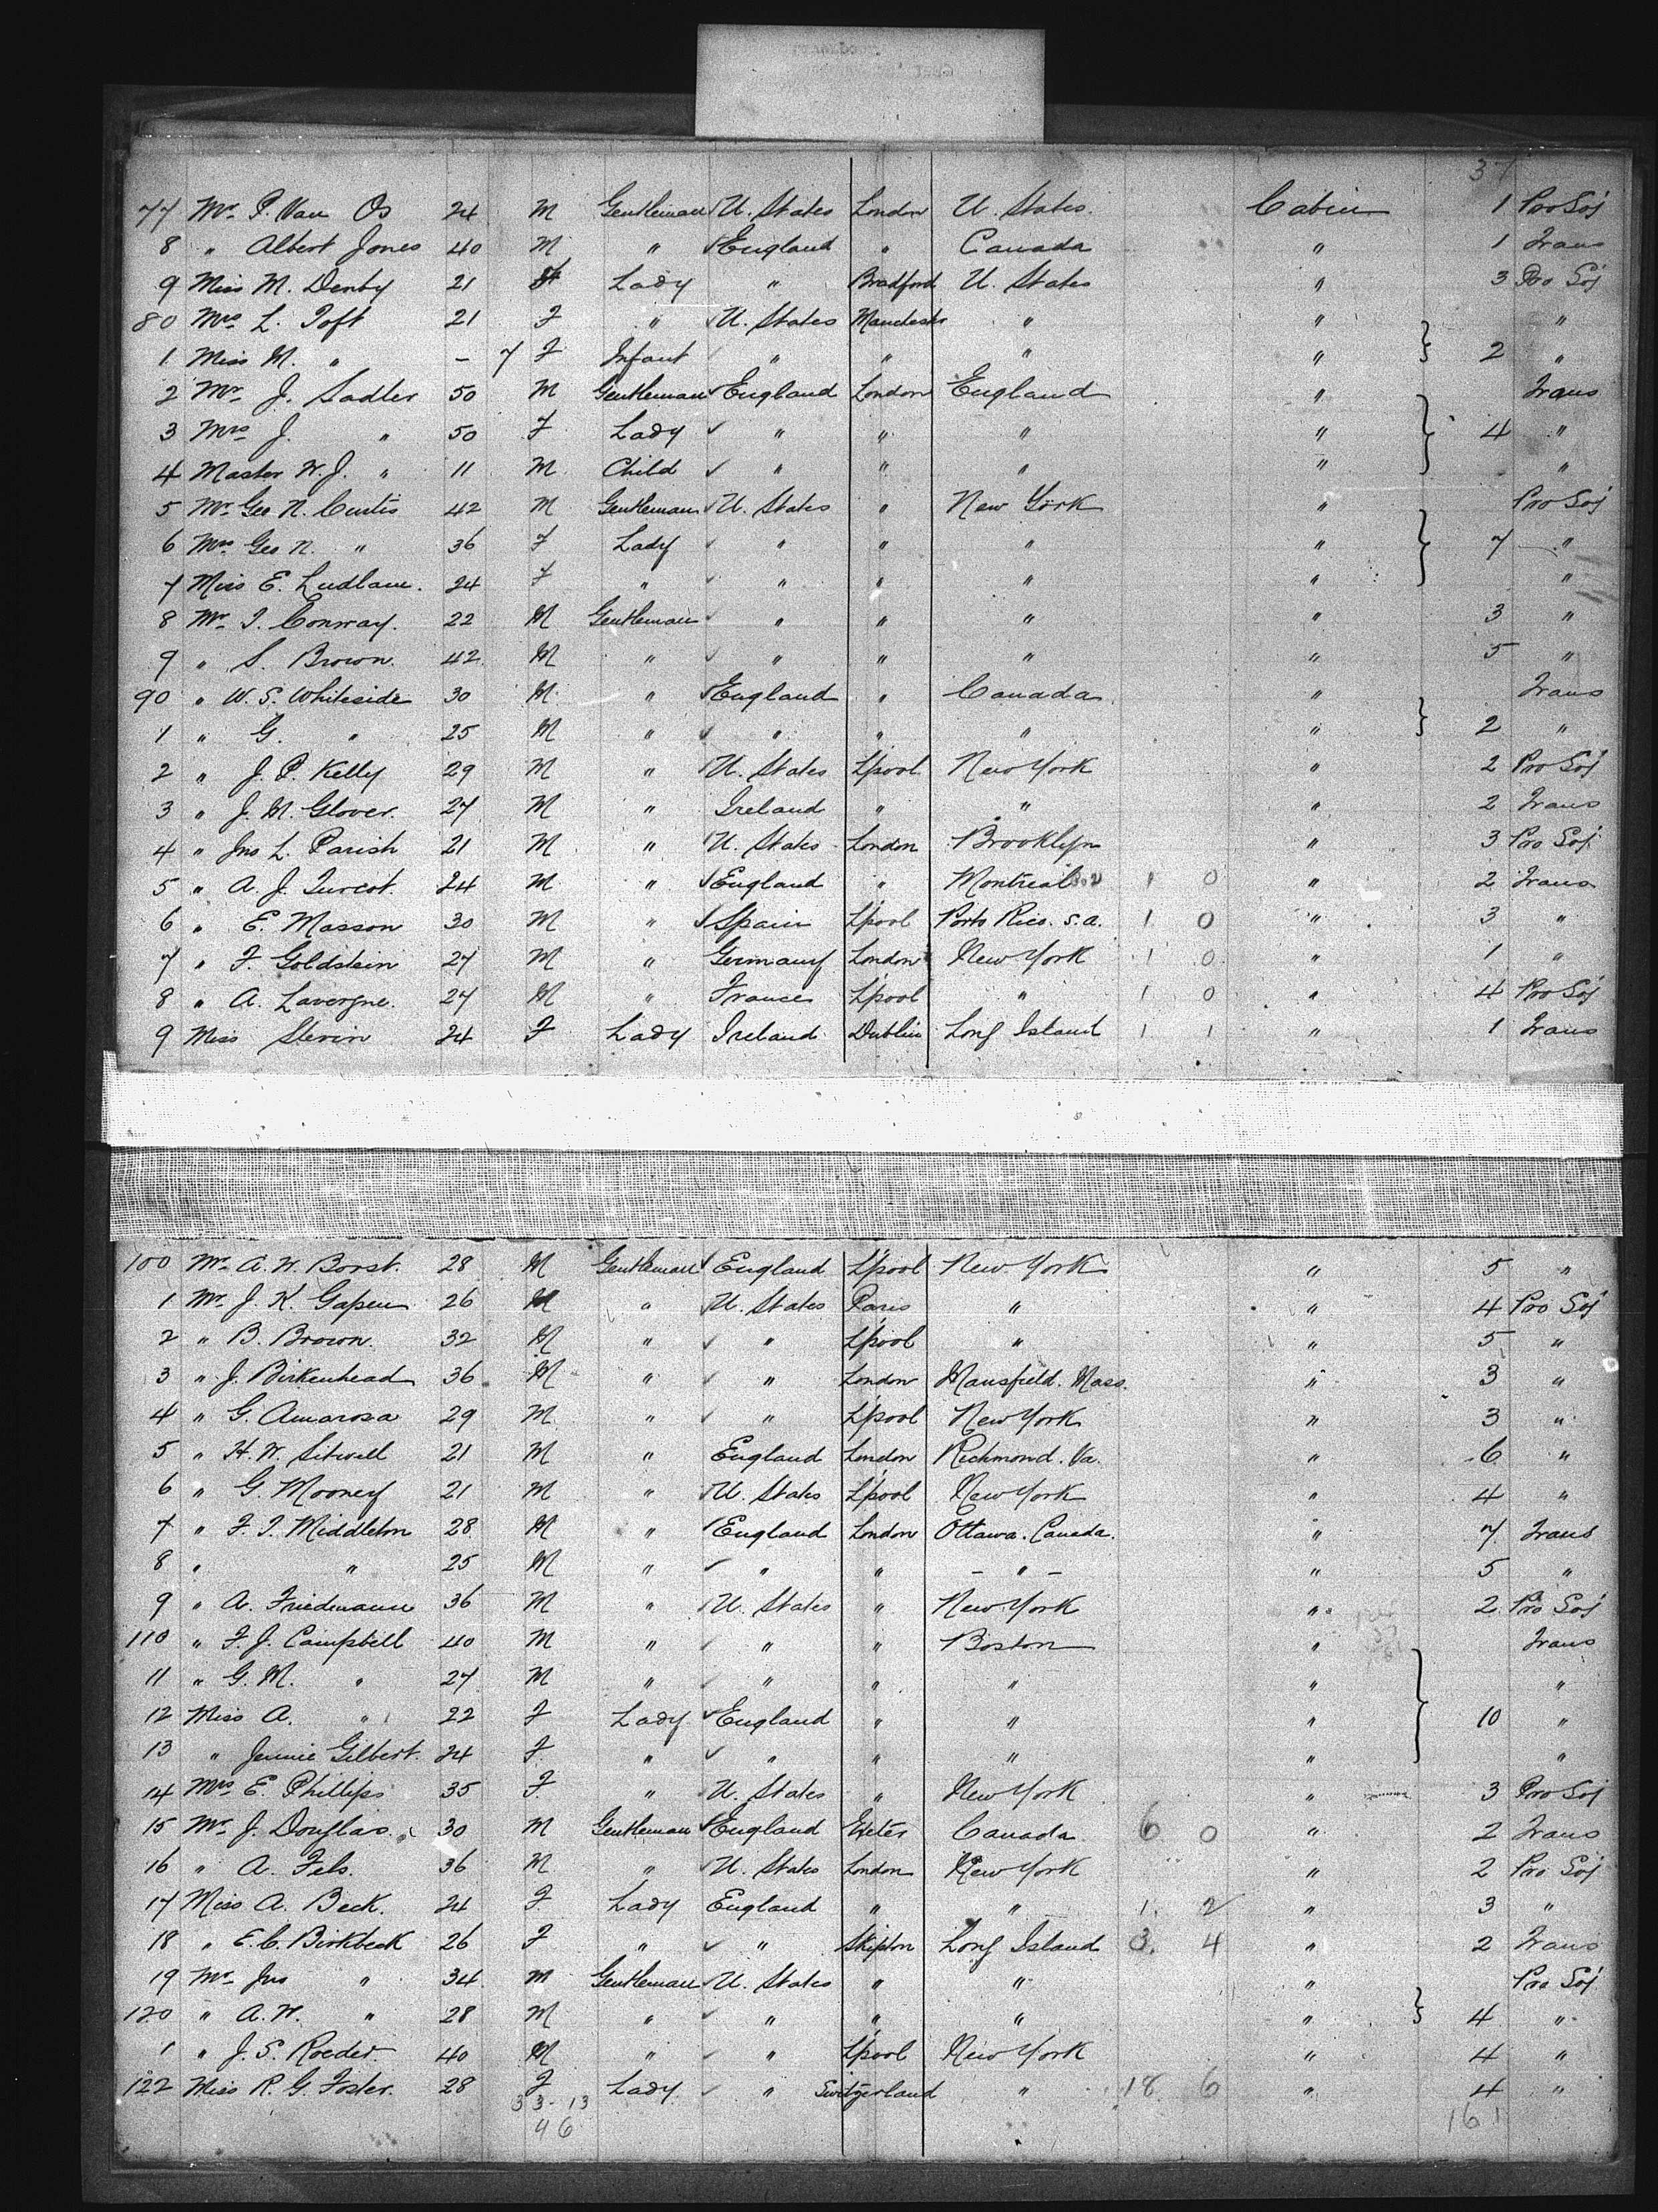 37
77 Mr P. Van Os 24 M Gentleman U. States London U. States Cabin 1 Pro Soj
8 " Albert Jones 40 M " England " Canada " 1 Trans
9 Miss M. Denby 21 F Lady " Bradford U. States " 3 Pro Soj
80 Mrs L. Toft 21 F " U. States Manchestr " " "
1 Miss M. " - 7 F Infant " " " " 2 "
2 Mr J. Sadler 50 M Gentleman England London England " Trans
3 Mrs J. " 50 F Lady " " " " 4 "
4 Master W. J. " 11 M Child " " " " "
5 Mr Geo N. Curtis 42 M Gentleman U. States " New York " Pro Soj
6 Mrs Geo N. " 36 F Lady " " " " 7 "
7 Miss E. Ludlam. 24 F " " " " " "
8 Mr T. Conway. 22 M Gentleman " " " " 3 "
9 " S. Brown. 42 M " " " " " 5 "
90 " W. S. Whiteside 30 M " England " Canada " Trans
1 " G. " 25 M " " " " " 2 "
2 " J. P. Kelly 29 M " U. States L'pool New York " 2 Pro Soj
3 " J. M. Glover. 27 M " Ireland " " " 2 Trans
4 " Jno L. Parish 21 M " U. States London Brooklyn " 3 Pro Soj
5 " A. J. Turcot. 24 M " England " Montreal 1 0 " 2 Trans
6 " E. Masson 30 M " Spain L'pool Porto Rico. S.A. 1 0 " 3 "
7 " F. Goldstein 27 M " Germany London New York 1 0 " 1 "
8 " A. Lavergne. 27 M " France L'pool " 1 0 " 4 Pro Soj
9 Miss Slevin 24 F Lady Ireland Dublin Long Island 1 1 " 1 Trans
100 Mr A. W. Borst. 28 M Gentleman England L'pool New York " 5 "
1 Mr J. K. Gapen 26 M " U. States Paris " " 4 Pro Soj
2 " B. Brown. 32 M " " L'pool " " 5 "
3 " J. Birkenhead 36 M " " London Mansfield. Mass. " 3 "
4 " G. Amarosa 29 M " " L'pool New York " 3 "
5 " H. W. Sitwell 21 M " England London Richmond. Va. " 6 "
6 " G. Mooney 21 M " U. States L'pool New York " 4 "
7 " F. T. Middleton 28 M " England London Ottawa. Canada. " 7 Trans
8 " " 25 M " " " - " - " 5 "
9 " A. Friedmann 36 M " U. States " New York " 2 Pro Soj
110 " F. J. Campbell 40 M " " " Boston " Trans
11 " G. M. " 27 M " " " " " "
12 Miss A. " 22 F Lady England " " " 10 "
13 " Jennie Gilbert. 24 F. " " " " " "
14 Mrs E. Phillips 35 F. " U. States " New York " 3 Pro Soj
15 Mr J. Douglas. 30 M Gentleman England Exeter Canada 6 0 " 2 Trans
16 " A. Fels. 36 M " U. States London New York " 2 Pro Soj
17 Miss A. Beck. 24 F. Lady England " " 1. 2 " 3 "
18 " E. C. Birkbeck 26 F " " Skipton Long Island 3. 4 " 2 Trans
19 Mr Jno " 34 M Gentleman U. States " " " Pro Soj
120 " A. W. " 28 M " " " " " 4 "
1 " J. S. Roeder. 40 M " " L'pool New York " 4 "
122 Miss R. G. Foster. 28 F Lady " Switzerland " 18 6 " 4 "
33-13
46
161